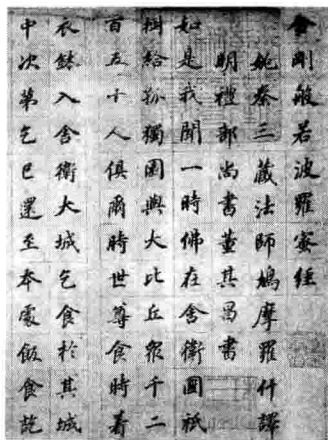 金剛般若波羅蜜經
姚秦三藏法師鳩摩羅什譯
明禮部尚書董其昌書
如是我聞一時佛在舍衛國祇
樹給孤獨園與大比丘眾千二
百五十人俱爾時世尊食時著
衣鉢入舍衛大城乞食於其城
中次第乞已還至本處飯食訖